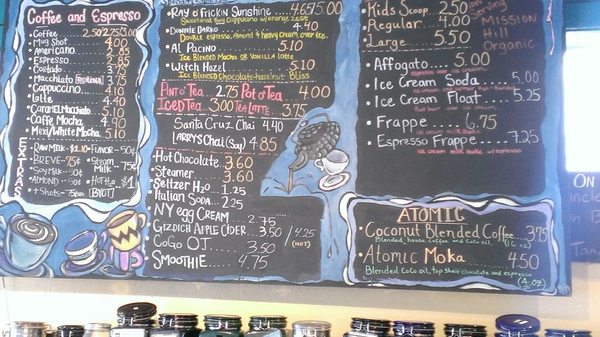 Coffee and Espresso
Coffee 2.50 2.75 3.00
Mug Shot 4.00
Americano 2.85
Espresso 2.85
Cortado 3.70
Macchiato 3.75
Cappuccino 4.10
Latte 4.40
Caramel Macchiato 5.10
Caffe Mocha 4.90
Mexi/White Mocha 5.10
EXTRAS
Raw Milk $1.10
Flavor 50¢
Breve 75¢
Steam Milk 75¢
Soy Milk 50¢
Almond 50¢
Hot H2O $1
+Shots 75¢
(BYOT)
Ray of Frickin Sunshine 4.65 5.00
Sweetened Soy Cappuccino w/orange zest
Donnie Darko 4.40
Double Espresso, Almond & heavy cream over ice.
Al Pacino 5.10
Ice Blended Mocha or Vanilla Latte
Witch Hazel 5.10
Ice Blended Chocolate-hazelnut Bliss
Pint o' Tea 2.75 Pot o' Tea 4.00
Iced Tea 3.00 Tea Latte 3.75
Santa Cruz Chai 4.40
Larry's Chai (Soy) 4.85
Hot Chocolate 3.60
Steamer 3.60
Seltzer H2O 1.25
Italian Soda 2.25
NY egg Cream 2.75
Gizdich Apple Cider 3.50 / 4.25 (HOT)
CoGo OJ 3.50
Smoothie 4.75
Kids Scoop 2.50
Regular 4.00
Large 5.50
serving
Mission
Hill
Organic
Affogato 5.00
espresso over ice cream
Ice Cream Soda 5.00
Ice Cream Float 5.25
Frappe 6.75
ice cream milk shake
Espresso Frappe 7.25
ice cream milk shake w/espresso
ATOMIC
Coconut Blended Coffee 3.75
Blended, house Coffee and Coco oil. (16 oz)
Atomic Moka 4.50
Blended Coco oil, top shelf chocolate and espresso
(4 oz)
ON